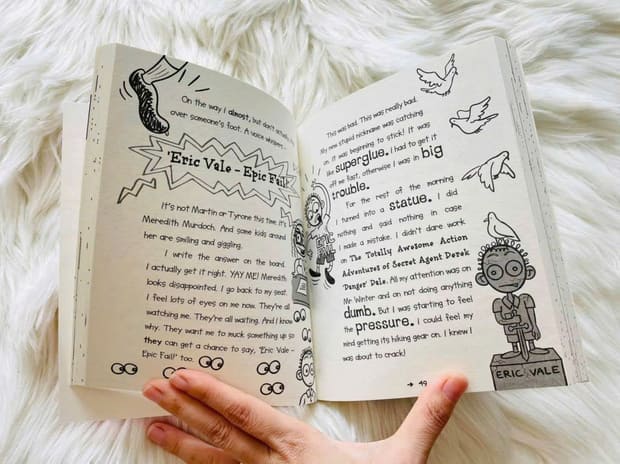 On the way I almost, but don't actually
over someone's foot. A voice whispers –
'Eric Vale – Epic Fail!'
It's not Martin or Tyrone this time. It's
Meredith Murdoch. And some kids around
her are smiling and giggling.
I write the answer on the board.
I actually get it right. YAY ME! Meredith
looks disappointed. I go back to my seat.
I feel lots of eyes on me now. They're all
watching me. They're all waiting. And I know
why. They want me to muck something up so
they can get a chance to say, 'Eric Vale –
Epic Fail!' too.
This was bad. This was really bad.
My new stupid nickname was catching
on. It was beginning to stick! It was
like superglue. I had to get it
off me fast, otherwise I was in big
trouble.
For the rest of the morning
I turned into a statue. I did
nothing and said nothing in case
I made a mistake. I didn't dare work
on The Totally Awesome Action
Adventures of Secret Agent Derek
'Danger' Dale. All my attention was on
Mr Winter and on not doing anything
dumb. But I was starting to feel
the pressure. I could feel my
mind getting its hiking gear on. I knew I
was about to crack!
ERIC VALE
→ 49